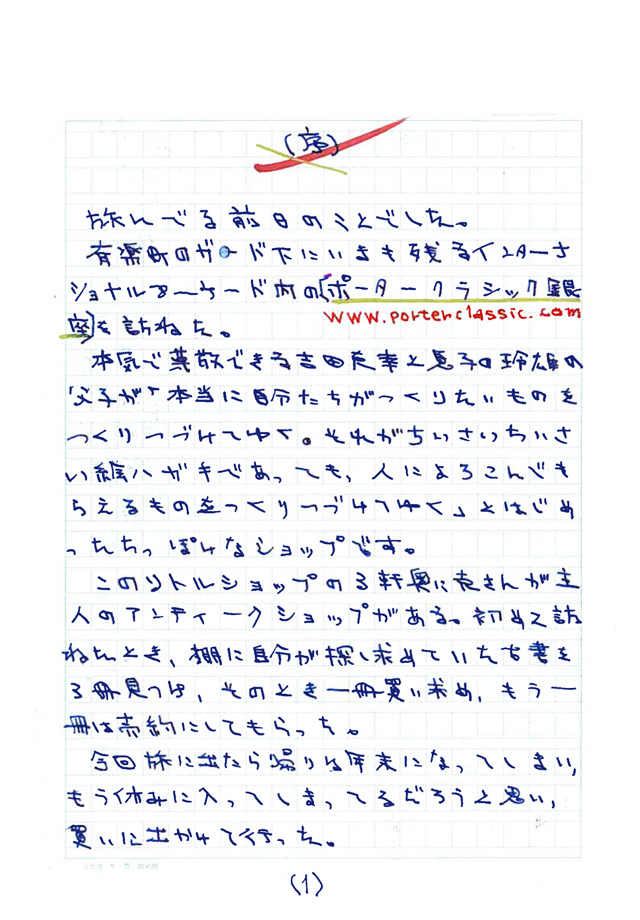 (序)
旅んでる前日のことでした。
有楽町のガード下にいまも残るインターナ
ショナルアーケード内の「ポータークラシック銀
www.porterclassic.com
座」を訪ねた。
本気で尊敬できる吉田克幸と息子の玲雄の
父子が「本当に自分たちがつくりたいものを
つくりつづけてゆく。それがちいさいちいさ
い絵ハガキであっても、人によろこんでも
らえるものをつくりつづけてゆく」とはじめ
ったちっぽけなショップです。
このリトルショップの3軒奥に売さんが主
人のアンティークショップがある。初めて訪
ねたとき、棚に自分が探し求めていた古書を
3冊見つけ、そのとき一冊買い求め、もう一
冊は売約にしてもらった。
今回旅に出たら帰りは年末になってしまい、
もう休みに入ってしまってるだろうと思い、
買いに出かけて行った。
(1)